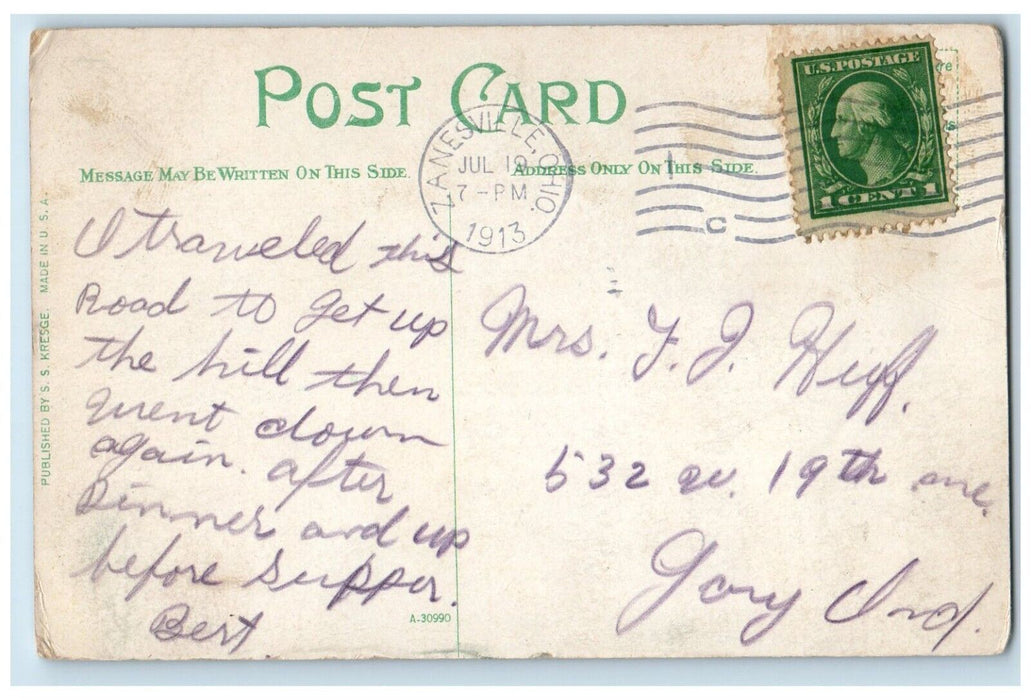 POST CARD
MESSAGE MAY BE WRITTEN ON THIS SIDE.
ADDRESS ONLY ON THIS SIDE.
ZANESVILLE, OHIO.
JUL 19
7-PM
1913
C
U.S. POSTAGE
1 CENT 1
PUBLISHED BY S. S. KRESGE. MADE IN U. S. A.
I traveled this
Road to get up
the hill then
went down
again. after
Dinner and up
before supper.
Bert
A-30990
Mrs. F. J. Huff.
532 W. 19th ave.
Gary Ind.